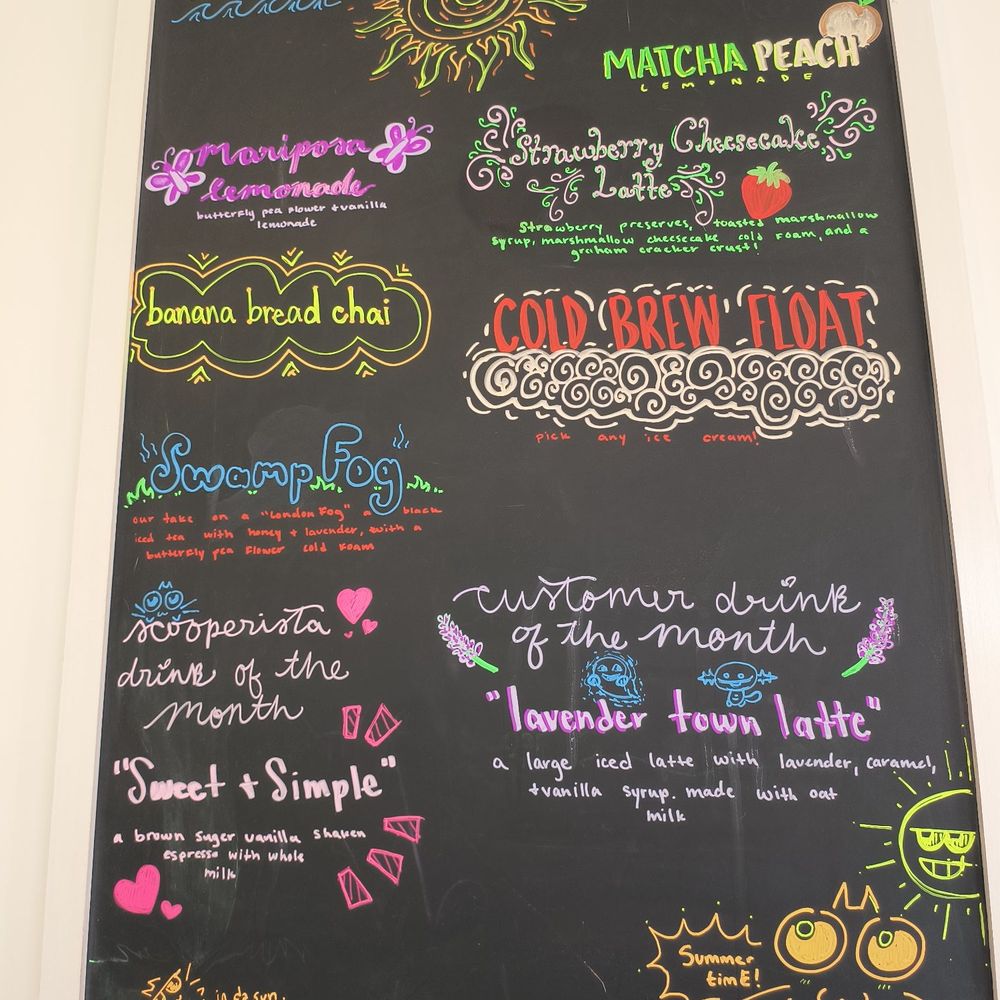 MATCHA PEACH
LEMONADE
Mariposa
lemonade
butterfly pea flower + vanilla
lemonade
Strawberry Cheesecake
Latte
Strawberry preserves, toasted marshmallow
syrup, marshmallow cheesecake cold foam, and a
graham cracker crust!
banana bread chai
COLD BREW FLOAT
pick any ice cream!
Swamp Fog
our take on a "London Fog" a black
iced tea with honey + lavender, with a
butterfly pea flower cold foam
scooperista
drink of the
month
"Sweet + Simple"
a brown suger vanilla shaken
espresso with whole
milk
customer drink
of the month
"lavender town latte"
a large iced latte with lavender, caramel,
+vanilla syrup. made with oat
milk
Summer
time!
in da sun.